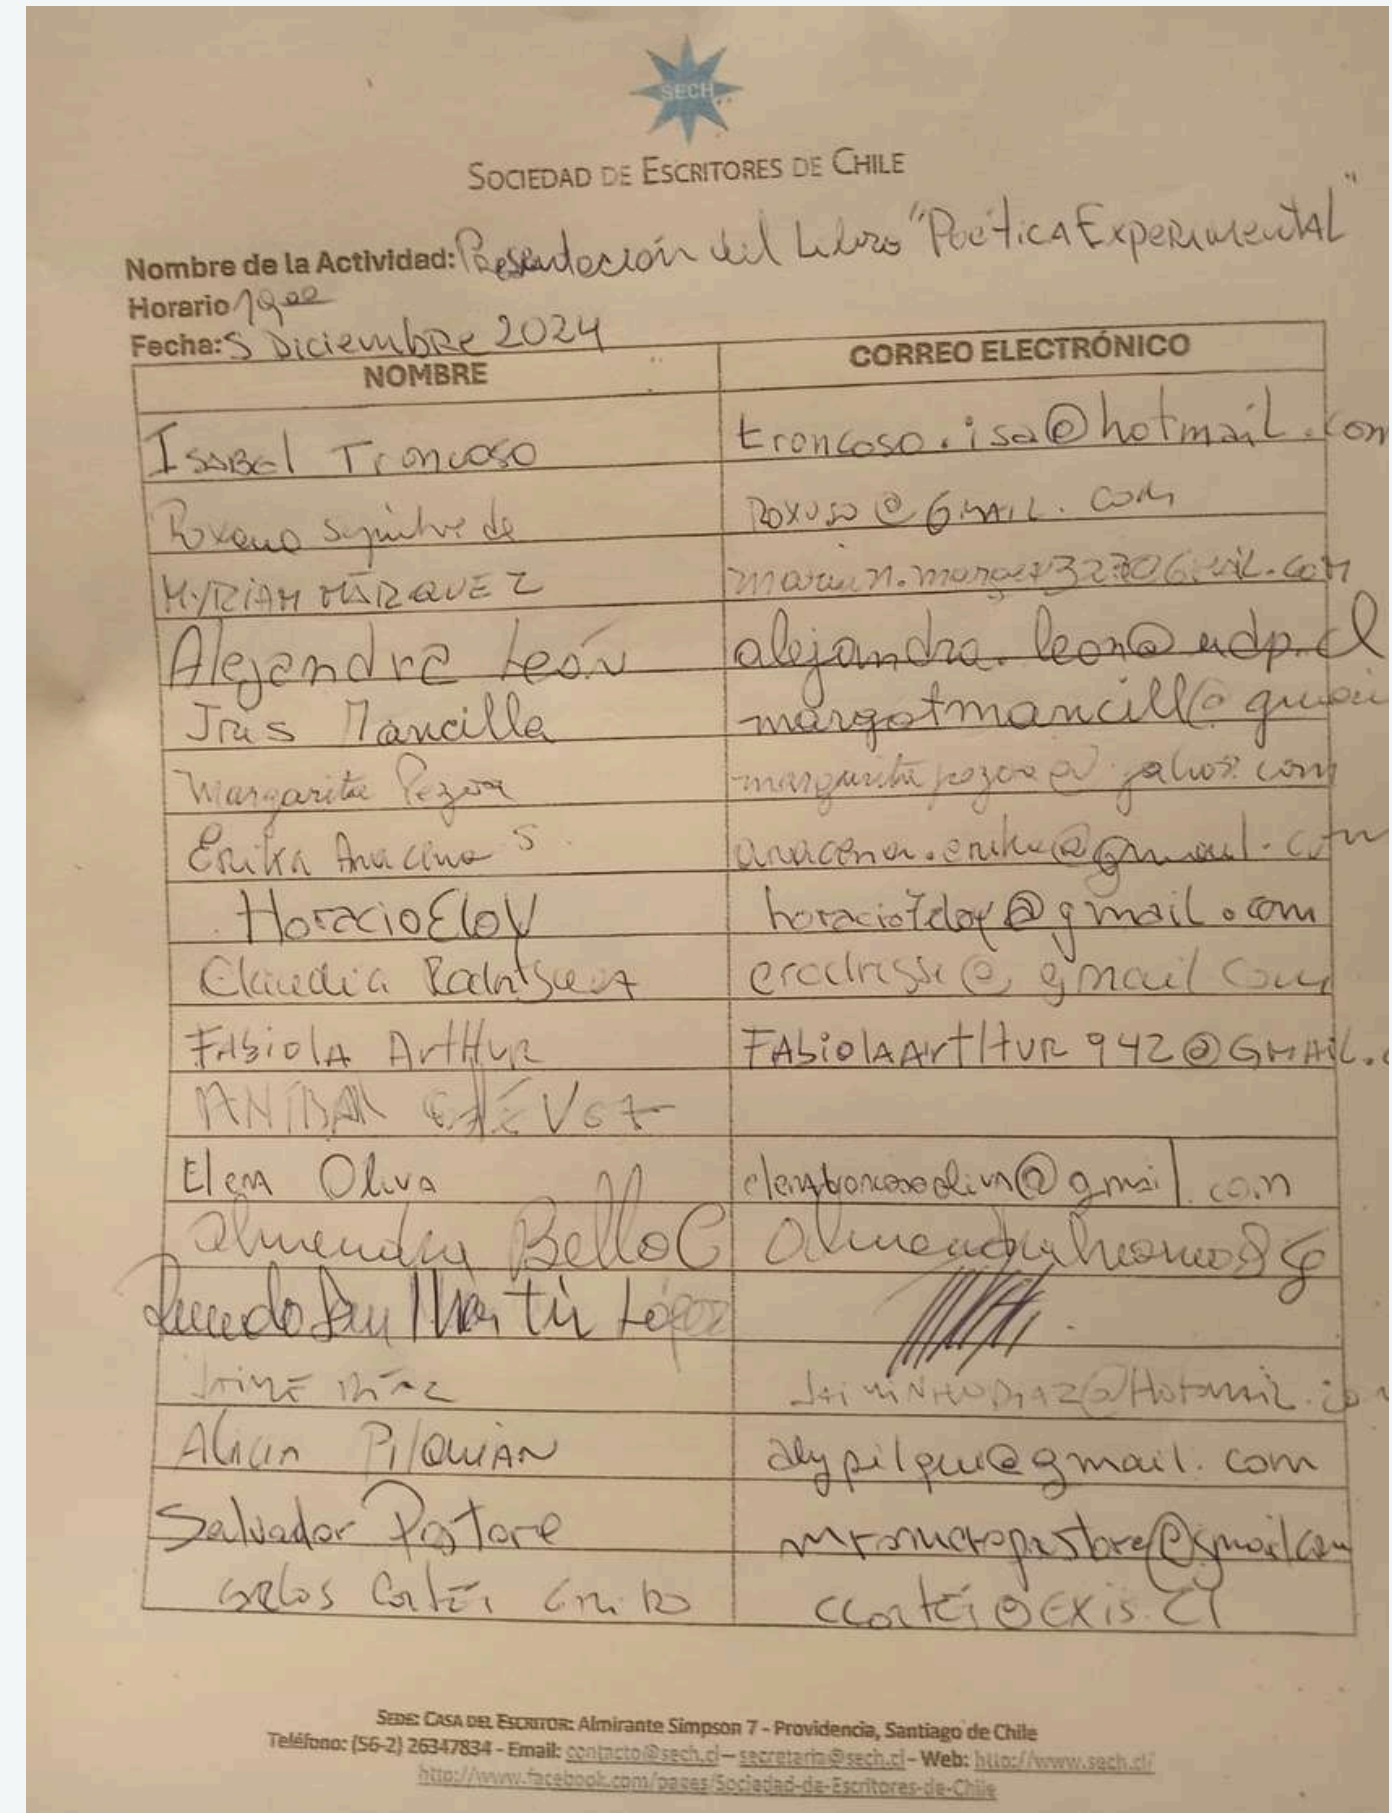 SECH
SOCIEDAD DE ESCRITORES DE CHILE
Nombre de la Actividad: Presentación del Libro "Poética Experimental"
Horario 19:00
Fecha: 5 Diciembre 2024
NOMBRE CORREO ELECTRÓNICO
Isabel Troncoso troncoso.isa@hotmail.com
Roxana @GMAIL.COM
MYRIAM MÁRQUEZ
Alejandra León alejandra.leon@udp.cl
Iris Mancilla margotmancill@gmai
Margarita Pezoa
Erika Aracena S aracena.erika@gmail.com
Horacio Eloy @gmail.com
Claudia @gmail.com
FABIOLA ARTHUR FABIOLAARTHUR942@GMAIL.
ANÍBAL
Elena Oliva @gmail.com
Almendra Bello C
San Martín López
JAIME DÍAZ @Hotmail.com
Alicia PilQuiAN alypilqui@gmail.com
Salvador Pastore @gmail.com
Carlos Cortés ccortés@exis.cl
SEDE: CASA DEL ESCRITOR: Almirante Simpson 7 - Providencia, Santiago de Chile
Teléfono: (56-2) 26347834 - Email: contacto@sech.cl – secretaria@sech.cl - Web: http://www.sech.cl/
http://www.facebook.com/pages/Sociedad-de-Escritores-de-Chile